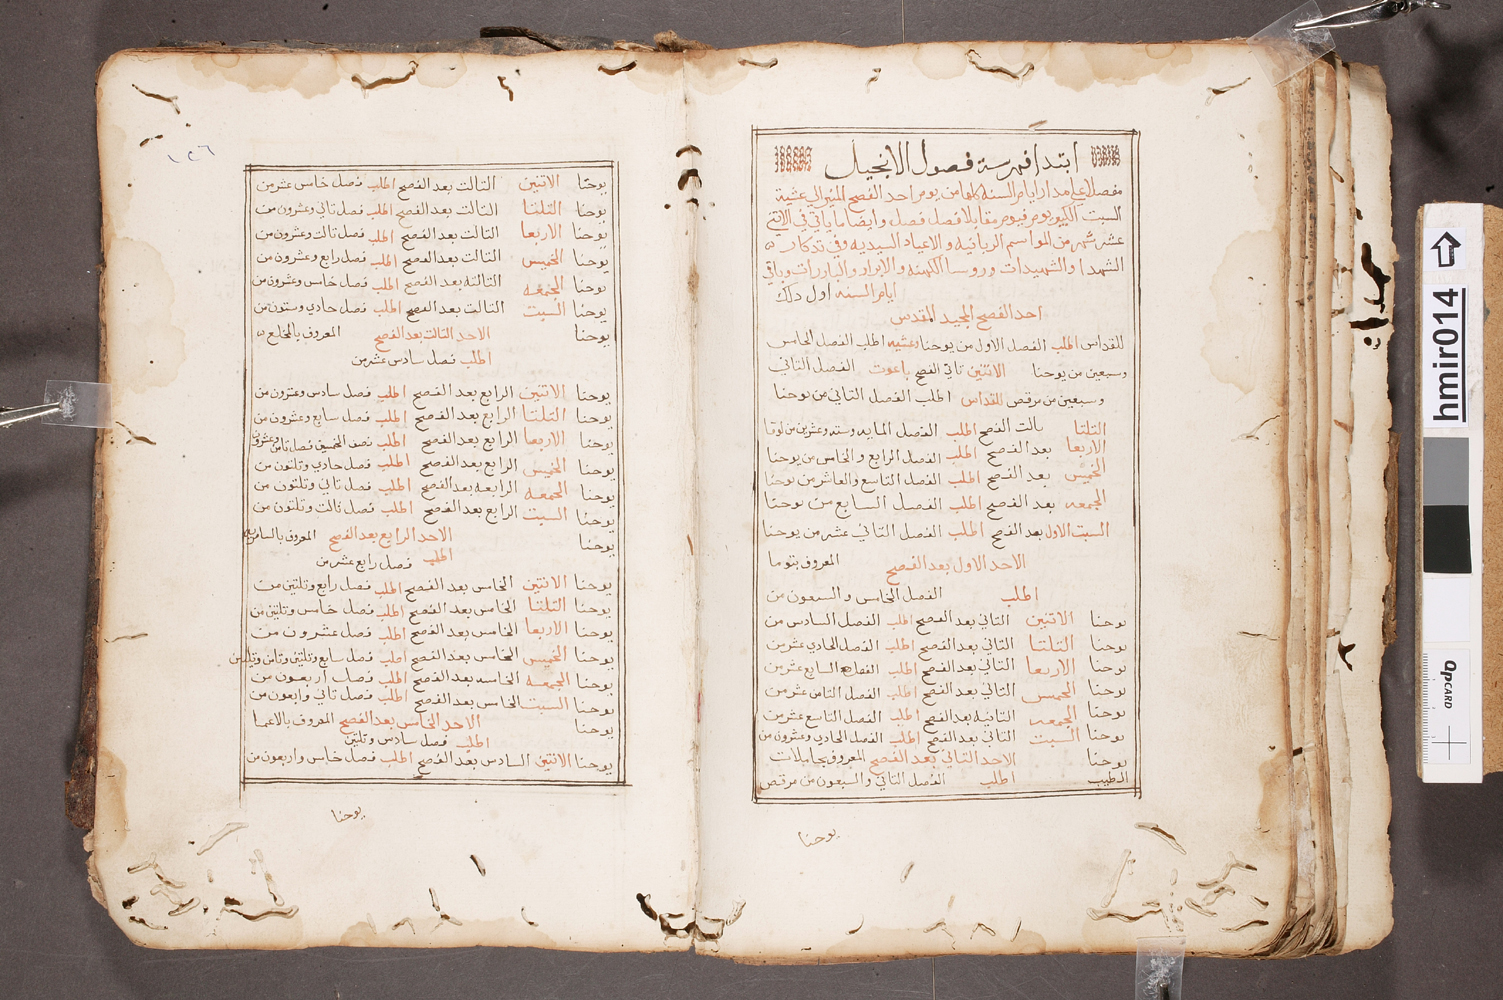 ابتدا فهرسة فصول الانجيل
مفصلا علي مدار ايام السنه كلها من يوم احد الفصح المنير الي عشية
السبت الكبير يوم فيوم مقابلا فصل فصل وايضا ما ياتي في الاثني
عشر شهر من المواسم الربانيه والاعياد السيديه وفي تذكار
الشهدا والشهيدات وروسا الكهنه والابرار والباررات وباقي
ايام السنه اول ذلك
احد الفصح المجيد المقدس
للقداس اطلب الفصل الاول من يوحنا وعشيه اطلب الفصل الخامس
وسبعين من يوحنا الاثنين تاني الفصح باعوت الفصل التاني
وسبعين من مرقص للقداس اطلب الفصل التاني من يوحنا
التلتا تالت الفصح اطلب الفصل المايه وسته وعشرين من لوقا
الاربعا بعد الفصح اطلب الفصل الرابع والخامس من يوحنا
الخميس بعد الفصح اطلب الفصل التاسع والعاشر من يوحنا
الجمعه بعد الفصح اطلب الفصل السابع من يوحنا
السبت الاول بعد الفصح اطلب الفصل التاني عشر من يوحنا
الاحد الاول بعد الفصح المعروف بتوما
اطلب الفصل الخامس والسبعون من
يوحنا الاثنين التاني بعد الفصح اطلب الفصل السادس من
يوحنا التلتا التاني بعد الفصح اطلب الفصل الحادي عشر من
يوحنا الاربعا التاني بعد الفصح اطلب الفصل السابع عشر من
يوحنا الخميس التاني بعد الفصح اطلب الفصل التامن عشر من
يوحنا الجمعه التانيه بعد الفصح اطلب الفصل التاسع عشر من
يوحنا السبت التاني بعد الفصح اطلب الفصل الحادي وعشرون من
يوحنا الاحد التاني بعد الفصح المعروف بحاملات
الطيب اطلب الفصل التاني والسبعون من مرقص
يوحنا
١٢٦
يوحنا الاتنين التالت بعد الفصح اطلب فصل خامس عشر من
يوحنا التلتا التالت بعد الفصح اطلب فصل تاني وعشرون من
يوحنا الاربعا التالت بعد الفصح اطلب فصل تالت وعشرون من
يوحنا الخميس التالت بعد الفصح اطلب فصل رابع وعشرون من
يوحنا الجمعه التالته بعد الفصح اطلب فصل خامس وعشرون من
يوحنا السبت التالت بعد الفصح اطلب فصل حادي وستون من
يوحنا الاحد التالت بعد الفصح المعروف بالمخلع
اطلب فصل سادس عشر من
يوحنا الاتنين الرابع بعد الفصح اطلب فصل سادس وعشرون من
يوحنا التلتا الرابع بعد الفصح اطلب فصل سابع وعشرون من
يوحنا الاربعا الرابع بعد الفصح اطلب نصف الخمسين فصل تامن وعشرون
يوحنا الخميس الرابع بعد الفصح اطلب فصل حادي وتلتون من
يوحنا الجمعه الرابعه بعد الفصح اطلب فصل تاني وتلتون من
يوحنا السبت الرابع بعد الفصح اطلب فصل تالت وتلتون من
يوحنا الاحد الرابع بعد الفصح المعروف بالسامريه
اطلب فصل رابع عشر من
يوحنا الاتنين الخامس بعد الفصح اطلب فصل رابع وتلتين من
يوحنا التلتا الخامس بعد الفصح اطلب فصل خامس وتلتين من
يوحنا الاربعا الخامس بعد الفصح اطلب فصل عشرون من
يوحنا الخميس الخامس بعد الفصح اطلب فصل سابع وتلتين وتامن وتلتين
يوحنا الجمعه الخامسه بعد الفصح اطلب فصل اربعون من
يوحنا السبت الخامس بعد الفصح اطلب فصل تاني واربعون من
يوحنا الاحد الخامس بعد الفصح المعروف بالاعما
اطلب فصل سادس وتلتين
يوحنا الاتنين السادس بعد الفصح اطلب فصل خامس واربعون من
يوحنا
hmir014
QPCARD